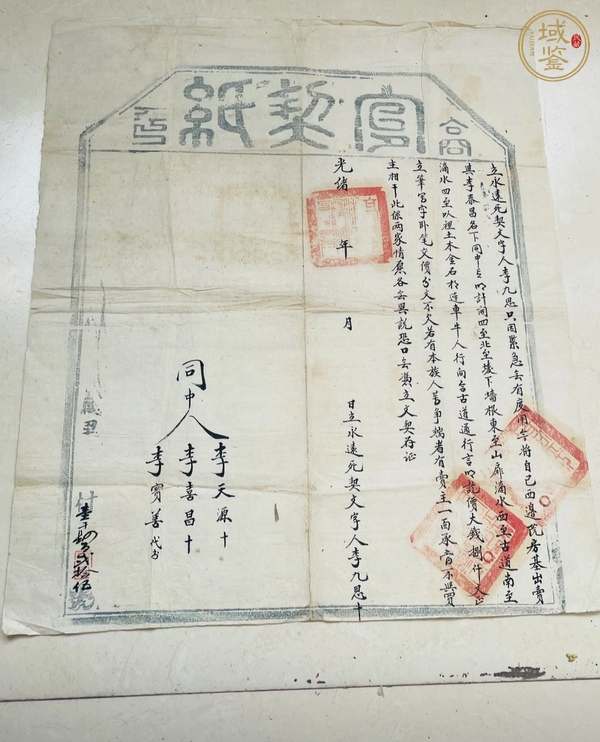 官契紙
立永遠死契文字人李九恩只因緊急無有度用今將自己西邊院房基出賣
與李泰昌名下同中言明計開四至北至坡下墻根東至山扉滴水西至古道南至
滴水四至以裡土木金石相連車牛人行向合古道通行言明乾價大錢捌仟文正
立筆寫字即筆交價分文不欠若有本族人等爭端者有賣主一面承當不與買
主相干此係兩家情愿各無異說恐口無憑立文契存証
光緒 年 月 日立永遠死契文字人李九恩十
同中人
李天源十
李喜昌十
李寶善代書
域鑒